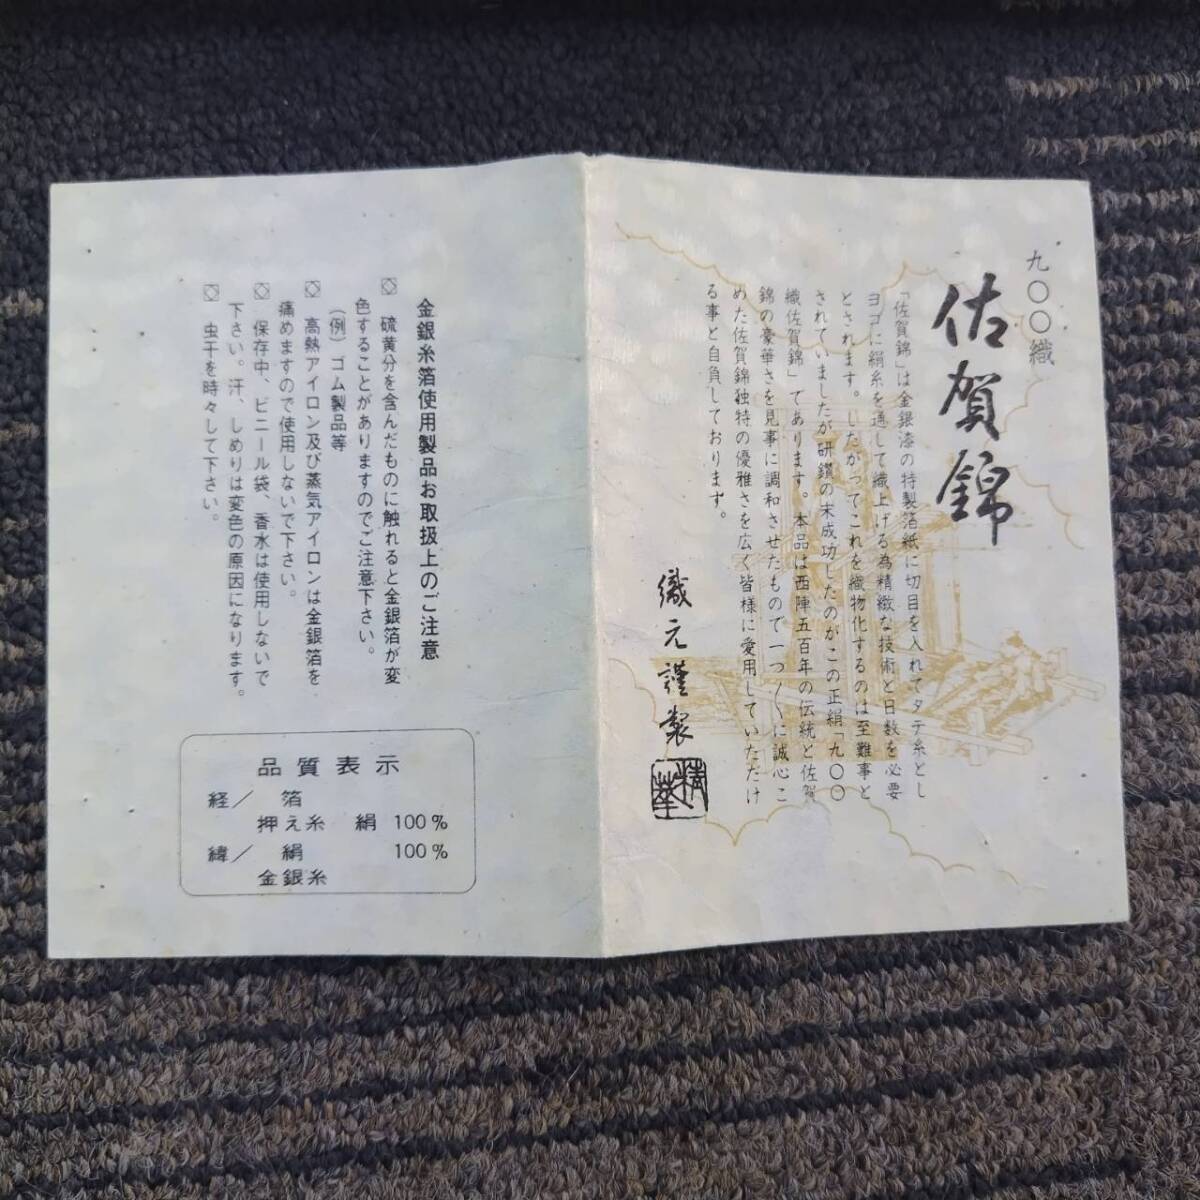 九〇〇織
佐賀錦
「佐賀錦」は金銀漆の特製箔紙に切目を入れてタテ糸とし
ヨコに絹糸を通して織上げる為精緻な技術と日数を必要
とされます。したがってこれを織物化するのは至難事と
されていましたが研鑽の末成功したのがこの正絹「九〇〇
織佐賀錦」であります。本品は西陣五百年の伝統と佐賀
錦の豪華さを見事に調和させたもので一つ〱に誠心こ
めた佐賀錦独特の優雅さを広く皆様に愛用していただけ
る事と自負しております。
織元謹製
精華
金銀糸箔使用製品お取扱上のご注意
硫黄分を含んだものに触れると金銀箔が変
色することがありますのでご注意下さい。
(例)ゴム製品等
高熱アイロン及び蒸気アイロンは金銀箔を
痛めますので使用しないで下さい。
保存中、ビニール袋、香水は使用しないで
下さい。汗、しめりは変色の原因になります。
虫干を時々して下さい。
品質表示
経/ 箔
押え糸 絹 100%
緯/ 絹 100%
金銀糸